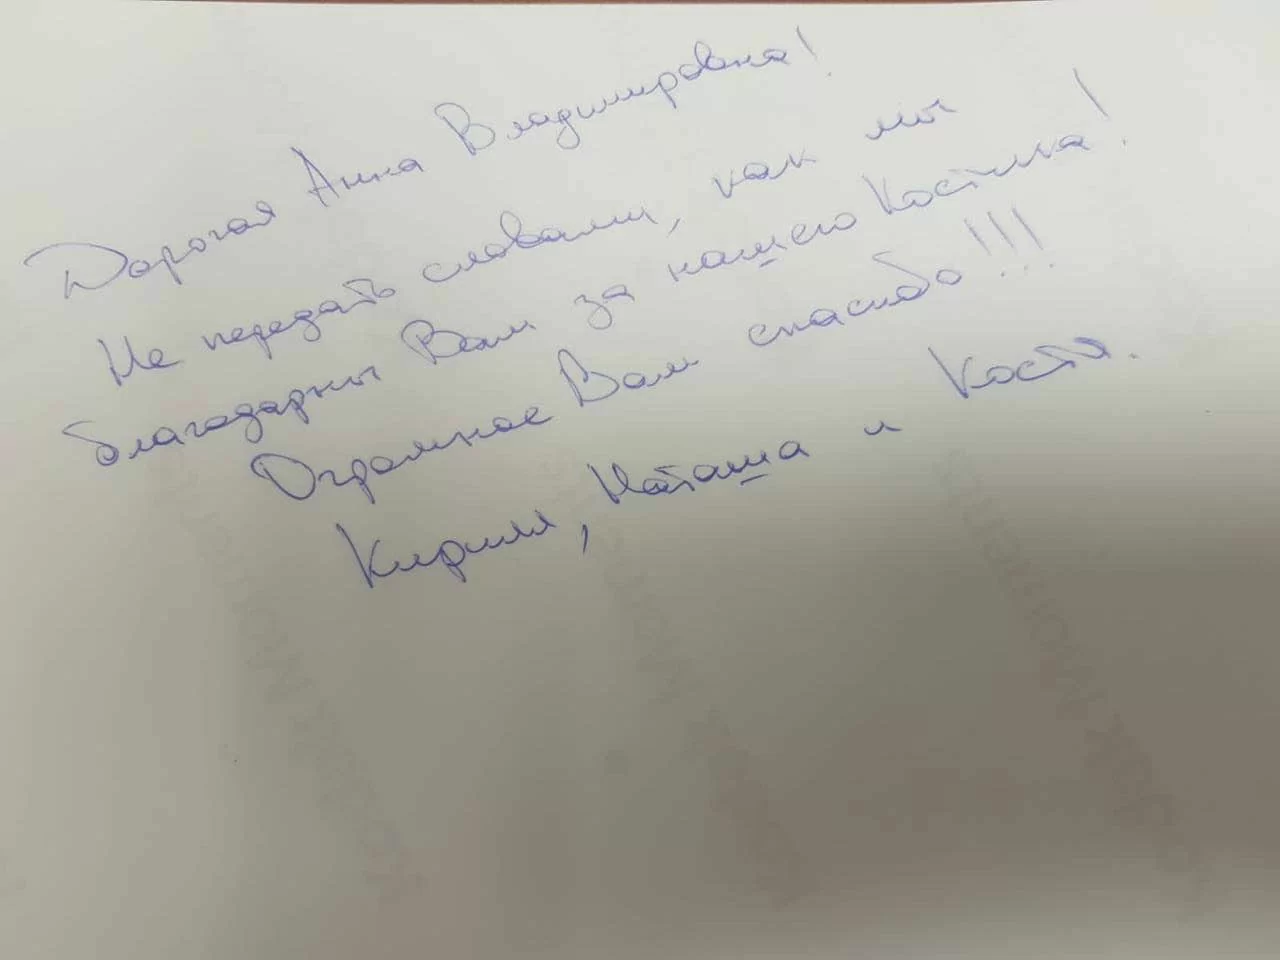 Дорогая Анна Владимировна!
Не передать словами, как мы
благодарны Вам за нашего Костика!
Огромное Вам спасибо!!!
Кирилл, Наташа и Костя.